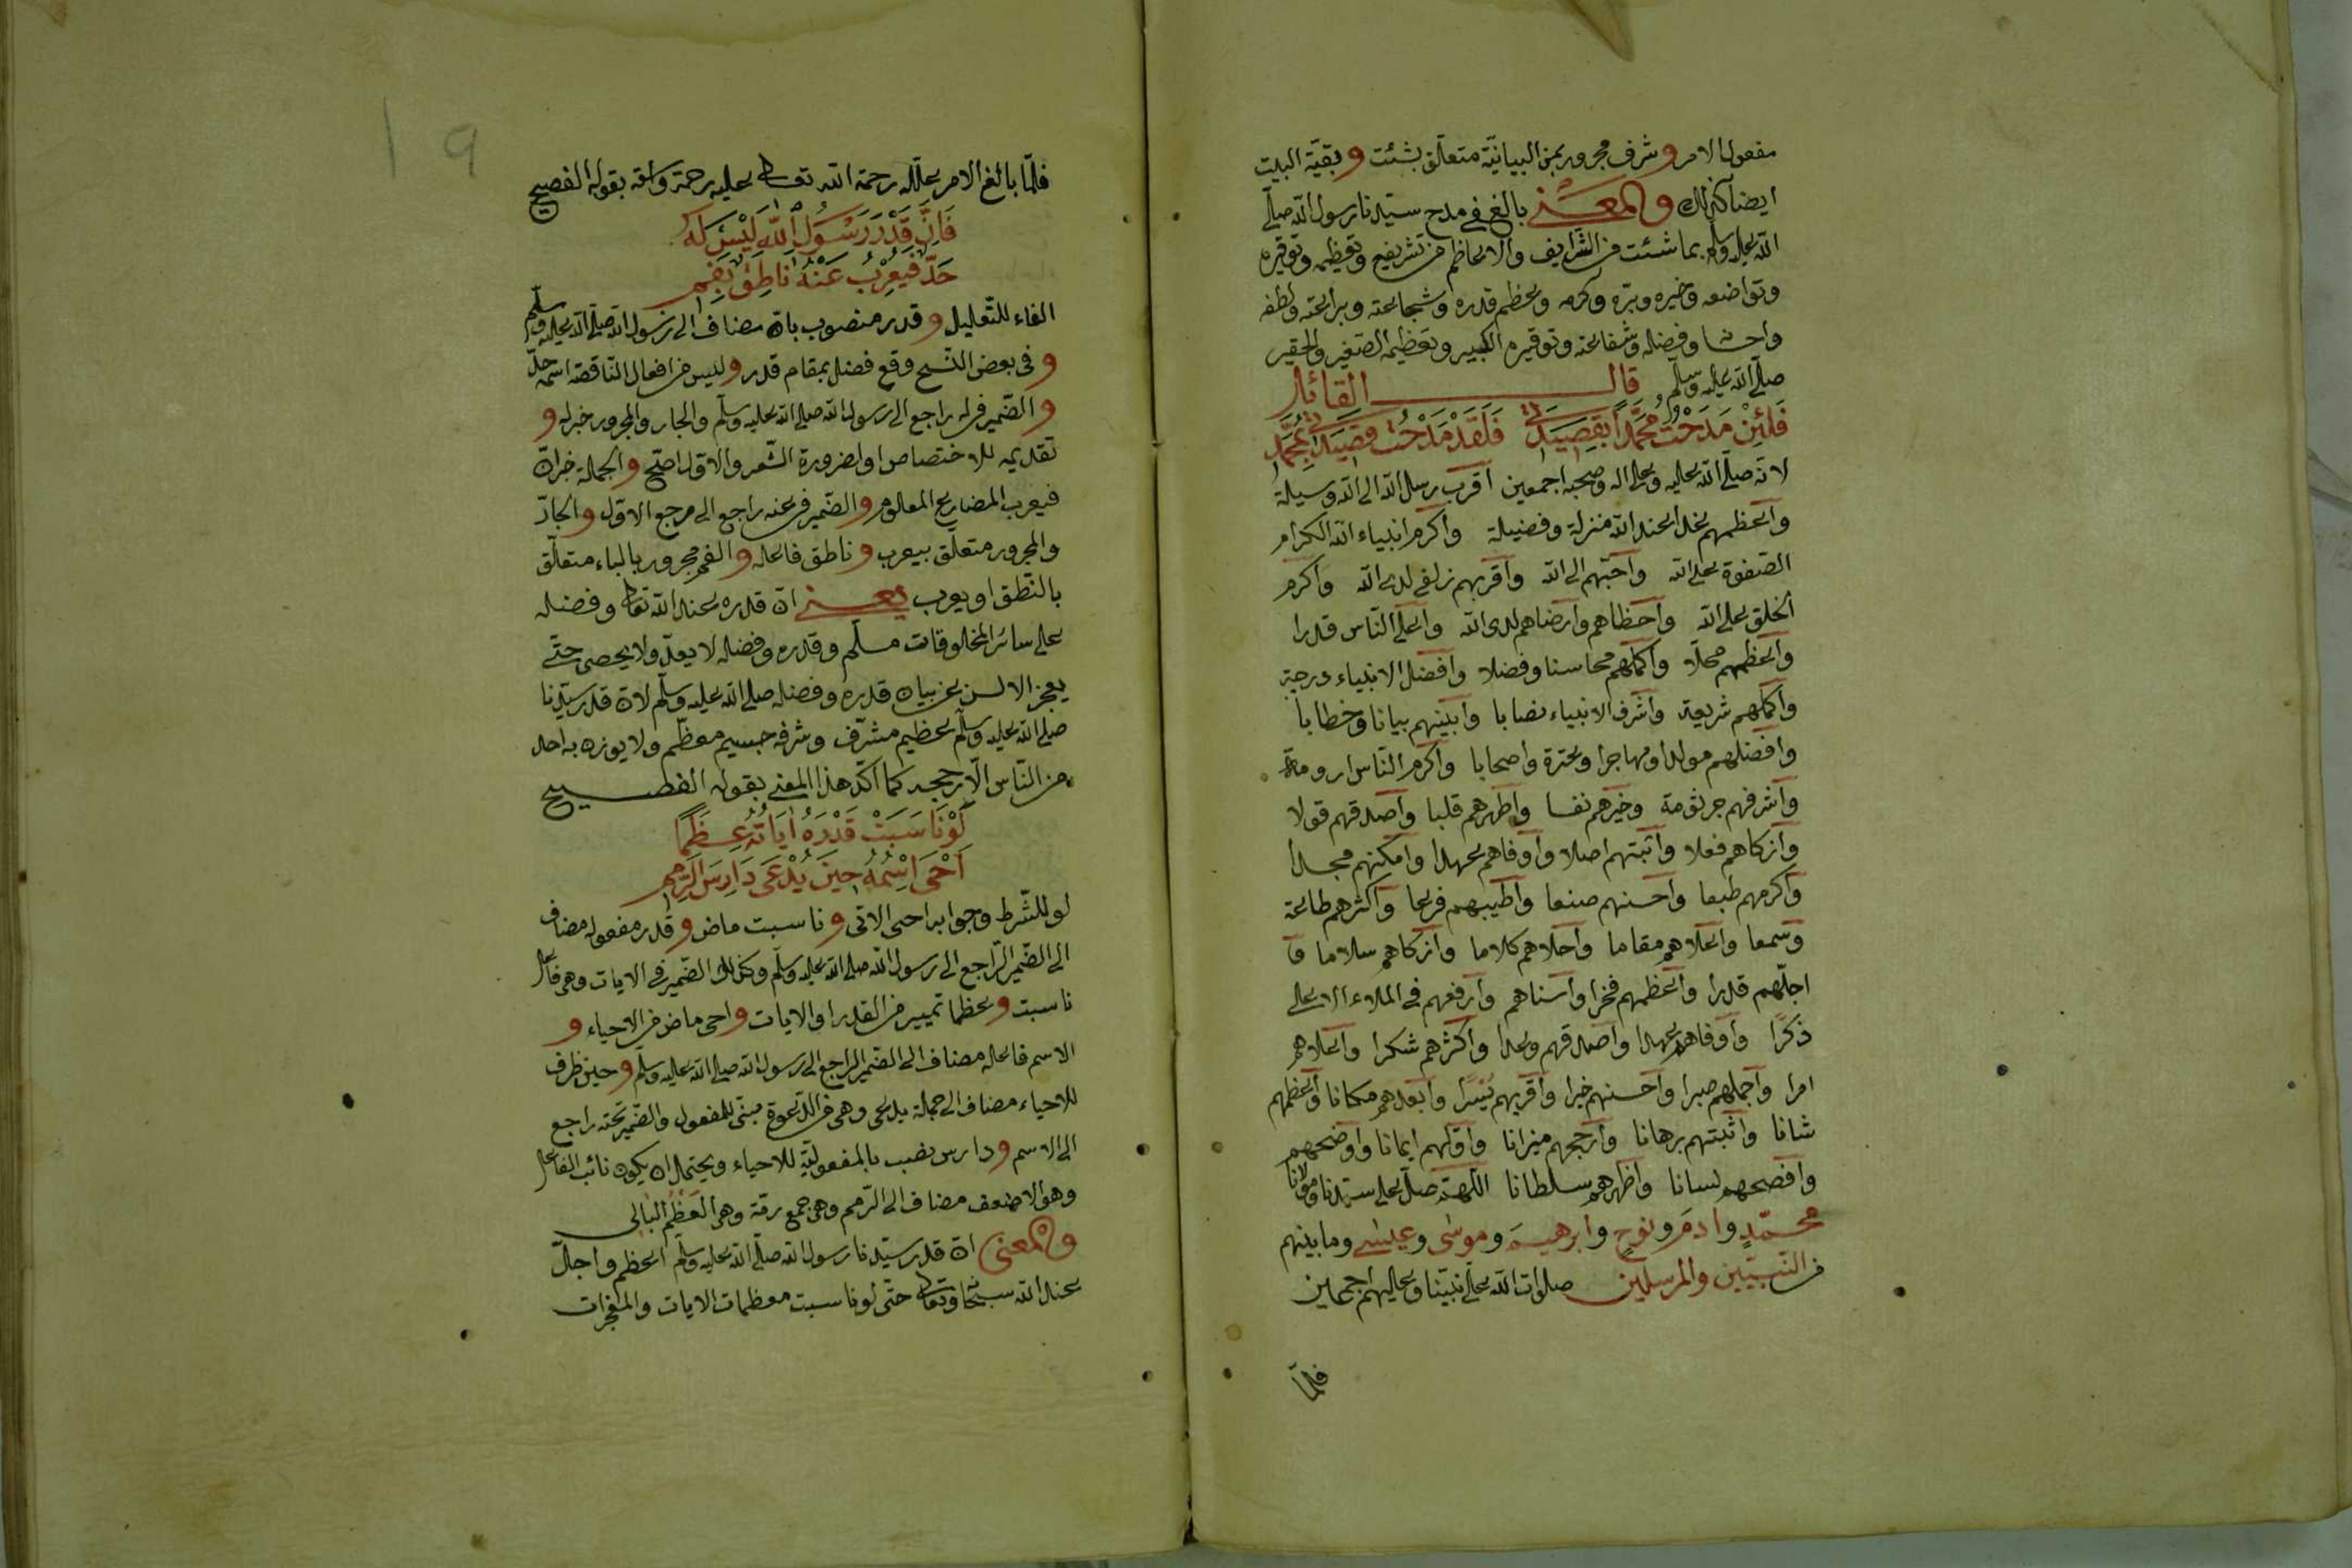 مفعول الامر وشرف مجرور بمن البيانيّة متعلّق بشئت وبقيّة البيت
ايضا كذلك والمعنى بالغ فى مدح سيّدنا رسول الله صلّى
الله عليه وسلم بما شئت من الشرايف والاعاظم من تشريفه وتعظيمه وتوقيره
وتواضعه وخيره وبرّه وكرمه وعظم قدره وشجاعته وبراعته ولطفه
واحسا وفضله وشفاعته وتوقيره الكبير وتعظيمه الصّغير والحقير
صلّى الله عليه وسلّم قال القائل
فَلَئِنْ مَدَحْتُ مُحَمَّدًا بِقَصِيدَتِى فَلَقَدْ مَدَحْتُ قَصِيدَتِى بِمُحَمَّدِ
لانّه صلّى الله عليه وعلى اله وصحبه اجمعين اقرب رسل الله الى الله وسيلة
واعظمهم غدا عند الله منزلة وفضيلة واكرم انبياء الله الكرام
الصّفوة على الله واحبّهم الى الله واقربهم زلفى لدى الله واكرم
الخلق على الله واحظاهم وارضاهم لدى الله واعلى النّاس قدرا
واعظمهم محلّا واكملهم محاسنا وفضلا وافضل الانبياء درجة
واكملهم شريعة واشرف الانبياء نصابا وابينهم بيانا وخطابا
وافضلهم مولدا ومهاجرا وعترة واصحابا واكرم النّاس ارومة
واشرفهم جرثومة وخيرهم نفسا واطهرهم قلبا واصدقهم قولا
وازكاهم فعلا واثبتهم اصلا واوفاهم عهدا وامكنهم مجدا
واكرمهم طبعا واحسنهم صنعا واطيبهم فرعا واكثرهم طاعة
وسمعا واعلاهم مقاما واحلاهم كلاما وازكاهم سلاما و
اجلّهم قدرا واعظمهم فخرا واسناهم وارفعهم فى الملاء الاعلى
ذكرًا واوفاهم عهدا واصدقهم وعدا واكثرهم شكرا واعلاهم
امرا واجملهم صبرا واحسنهم خيرا واقربهم يُسْرًا وابعدهم مكانا واعظمهم
شانا واثبتهم برهانا وارجحهم ميزانا واوّلهم ايمانا واوضحهم
وافصحهم لسانا واظهرهم سلطانا اللّهمّ صلّ على سيّدنا ومولانا
محمّدٍ وادم ونوحٍ وابرهيم وموسى وعيسى وما بينهم
من النّبيّين والمرسلين صلوات الله على نبيّنا وعليهم اجمعين
فلمّا
١٩
فلمّا بالغ الامر علّله رحمة الله تعالى عليه رحمة واسعة بقوله الفصيح
فَاِنَّ قَدْرَ رَسُولِ اللهِ لَيْسَ لَهُ
حَدٌّ فَيُعْرِبُ عَنْهُ نَاطِقٌ بِفَمِ
الفاء للتّعليل وقدر منصوب بانّ مضاف الى رسول الله صلّى الله عليه وسلّم
وفى بعض النّسخ وقع فضل بمقام قدر وليس من افعال النّاقصة اسمه حدّ
والضّمير فى له راجع الى رسول الله صلى الله عليه وسلّم والجار والمجرور خبر له و
تقديمه للاختصاص او لضرورة الشّعر والاوّل اصحّ والجملة خبر انّ
فيعرب المضارع المعلوم والضّمير فى عنه راجع الى مرجع الاوّل والجارّ
والمجرور متعلّق بيعرب وناطق فاعله والفم مجرور بالباء متعلّق
بالنّطق او يعرب يعنى انّ قدره عند الله تعالى وفضله
على سائر المخلوقات مسلّم وقدره وفضله لا يعدّ ولا يحصى حتّى
يعجز الالسن عن بيان قدره وفضله صلى الله عليه وسلّم لانّ قدر سيّدنا
صلى الله عليه وسلّم عظيم مشرّف وشرفه جسيم معظّم ولا يوزن به احد
من النّاس الّا رجح كما اكّد هذا المعنى بقوله الفصيح
لَوْ نَاسَبَتْ قَدْرَهُ اٰيَاتُهُ عِظَمًا
اَحْيَى اسْمُهُ حِينَ يُدْعَى دَارِسَ الرِّمَمِ
لو للشّرط وجوابه احيى الاتى وناسبت ماض وقدر مفعوله مضاف
الى الضّمير الرّاجع الى رسول الله صلى الله عليه وسلّم وكذلك الضّمير فى الايات وهى فاعل
ناسبت وعظما تمييز من القدر او الايات واحى ماض من الاحياء و
الاسم فاعله مضاف الى الضّمير الراجع الى رسول الله صلى الله عليه وسلّم وحين ظرف
للاحياء مضاف الى جملة يدعى وهى من الدّعوة مبنى للمفعول والضّمير تحته راجع
الى الاسم ودارس نصب بالمفعوليّة للاحياء ويحتمل ان يكون نائب الفاعل
وهو الاضعف مضاف الى الرّمم وهى جمع رمّة وهى العَظْم البالى
والمعنى انّ قدر سيّدنا رسول الله صلّى الله عليه وسلّم اعظم واجلّ
عند الله سبحا وتعالى حتّى لو ناسبت معظمات الايات والمعجزات